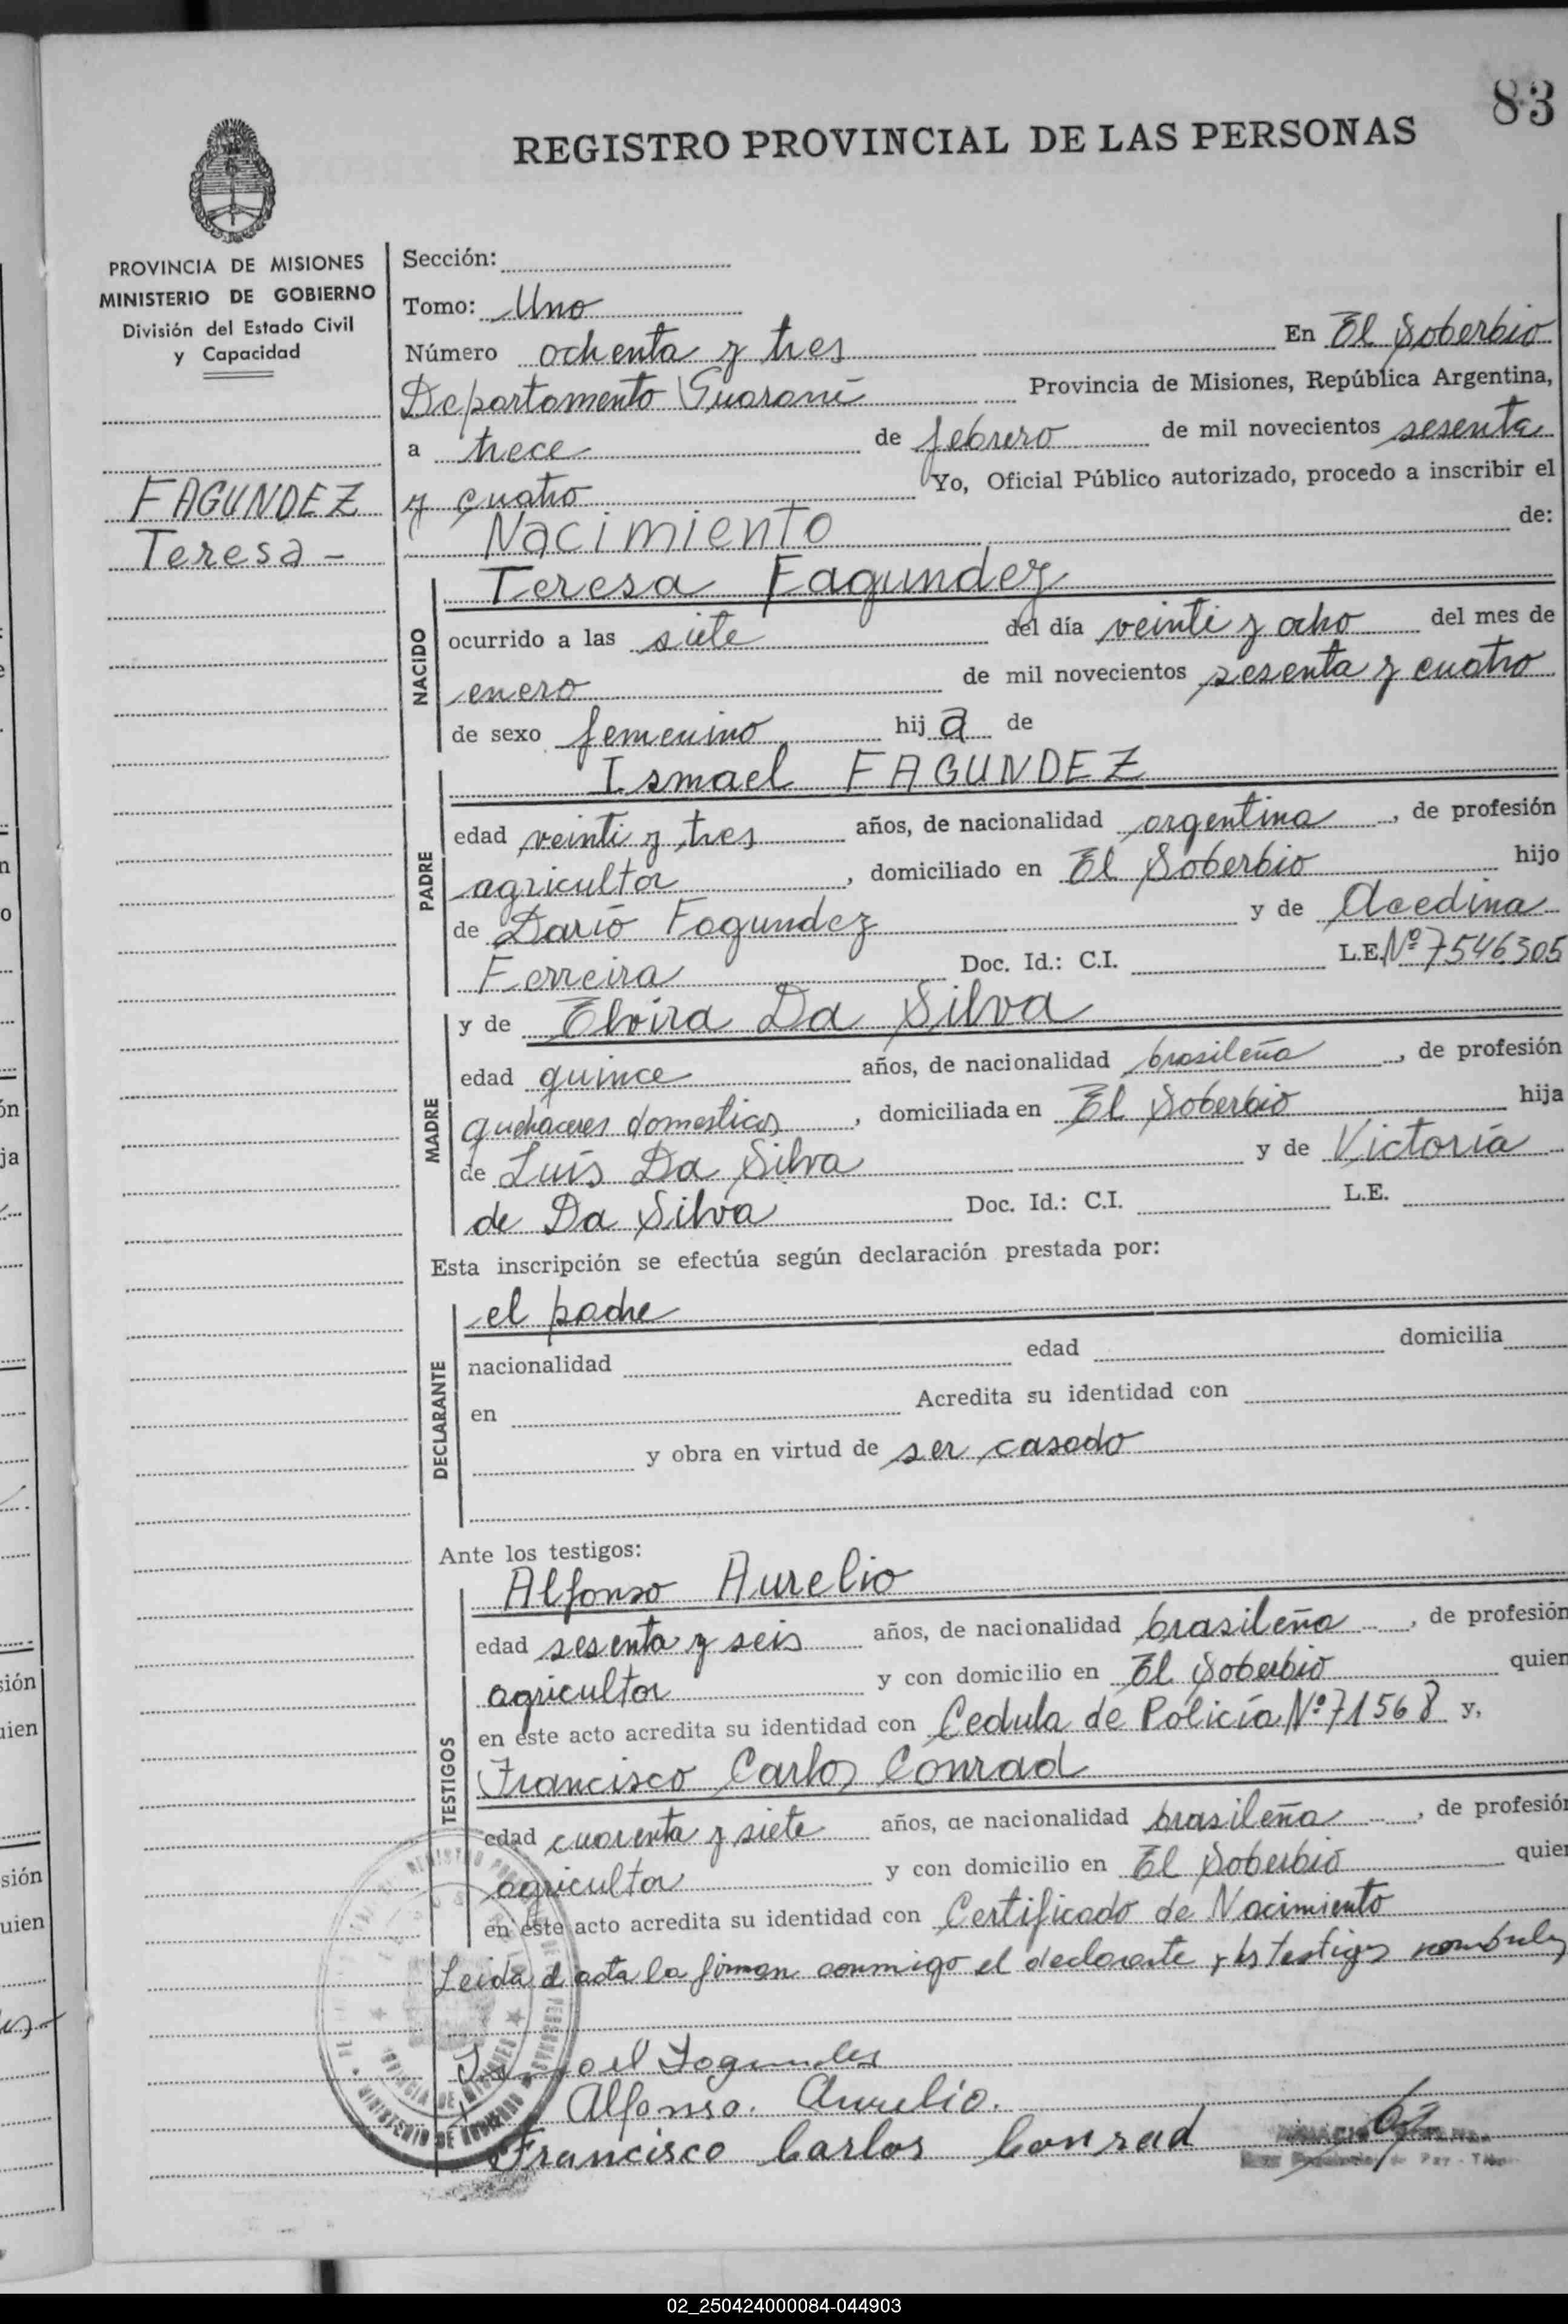 83
REGISTRO PROVINCIAL DE LAS PERSONAS
PROVINCIA DE MISIONES
MINISTERIO DE GOBIERNO
División del Estado Civil
y Capacidad
FAGUNDEZ
Teresa -
Sección:
Tomo: Uno
Número ochenta y tres En El Soberbio
Departamento Guaraní Provincia de Misiones, República Argentina,
a trece de febrero de mil novecientos sesenta
y cuatro Yo, Oficial Público autorizado, procedo a inscribir el
Nacimiento de:
NACIDO
Teresa Fagundez
ocurrido a las siete del día veinti y ocho del mes de
enero de mil novecientos sesenta y cuatro
de sexo femenino hija de
PADRE
Ismael FAGUNDEZ
edad veinti y tres años, de nacionalidad argentina, de profesión
agricultor, domiciliado en El Soberbio hijo
de Darió Fagundez y de Acedina
Ferreira Doc. Id.: C.I. L.E. Nº 7546305
MADRE
y de Elvira Da Silva
edad quince años, de nacionalidad brasileña, de profesión
quehaceres domesticos, domiciliada en El Soberbio hija
de Luis Da Silva y de Victoria
de Da Silva Doc. Id.: C.I. L.E.
Esta inscripción se efectúa según declaración prestada por:
DECLARANTE
el padre
nacionalidad edad domicilia
en Acredita su identidad con
y obra en virtud de ser casado
Ante los testigos:
TESTIGOS
Alfonso Aurelio
edad sesenta y seis años, de nacionalidad brasileña, de profesión
agricultor y con domicilio en El Soberbio quien
en este acto acredita su identidad con Cedula de Policía Nº 71568 y,
Francisco Carlos Conrad
edad cuarenta y siete años, de nacionalidad brasileña, de profesión
agricultor y con domicilio en El Soberbio quien
en este acto acredita su identidad con Certificado de Nacimiento
Leida el acta la firman conmigo el declarante y los testigos
Ismael Fagundes
Alfonso. Aurelio.
Francisco Carlos Conrad
MINISTERIO DE GOBIERNO
02_250424000084-044903